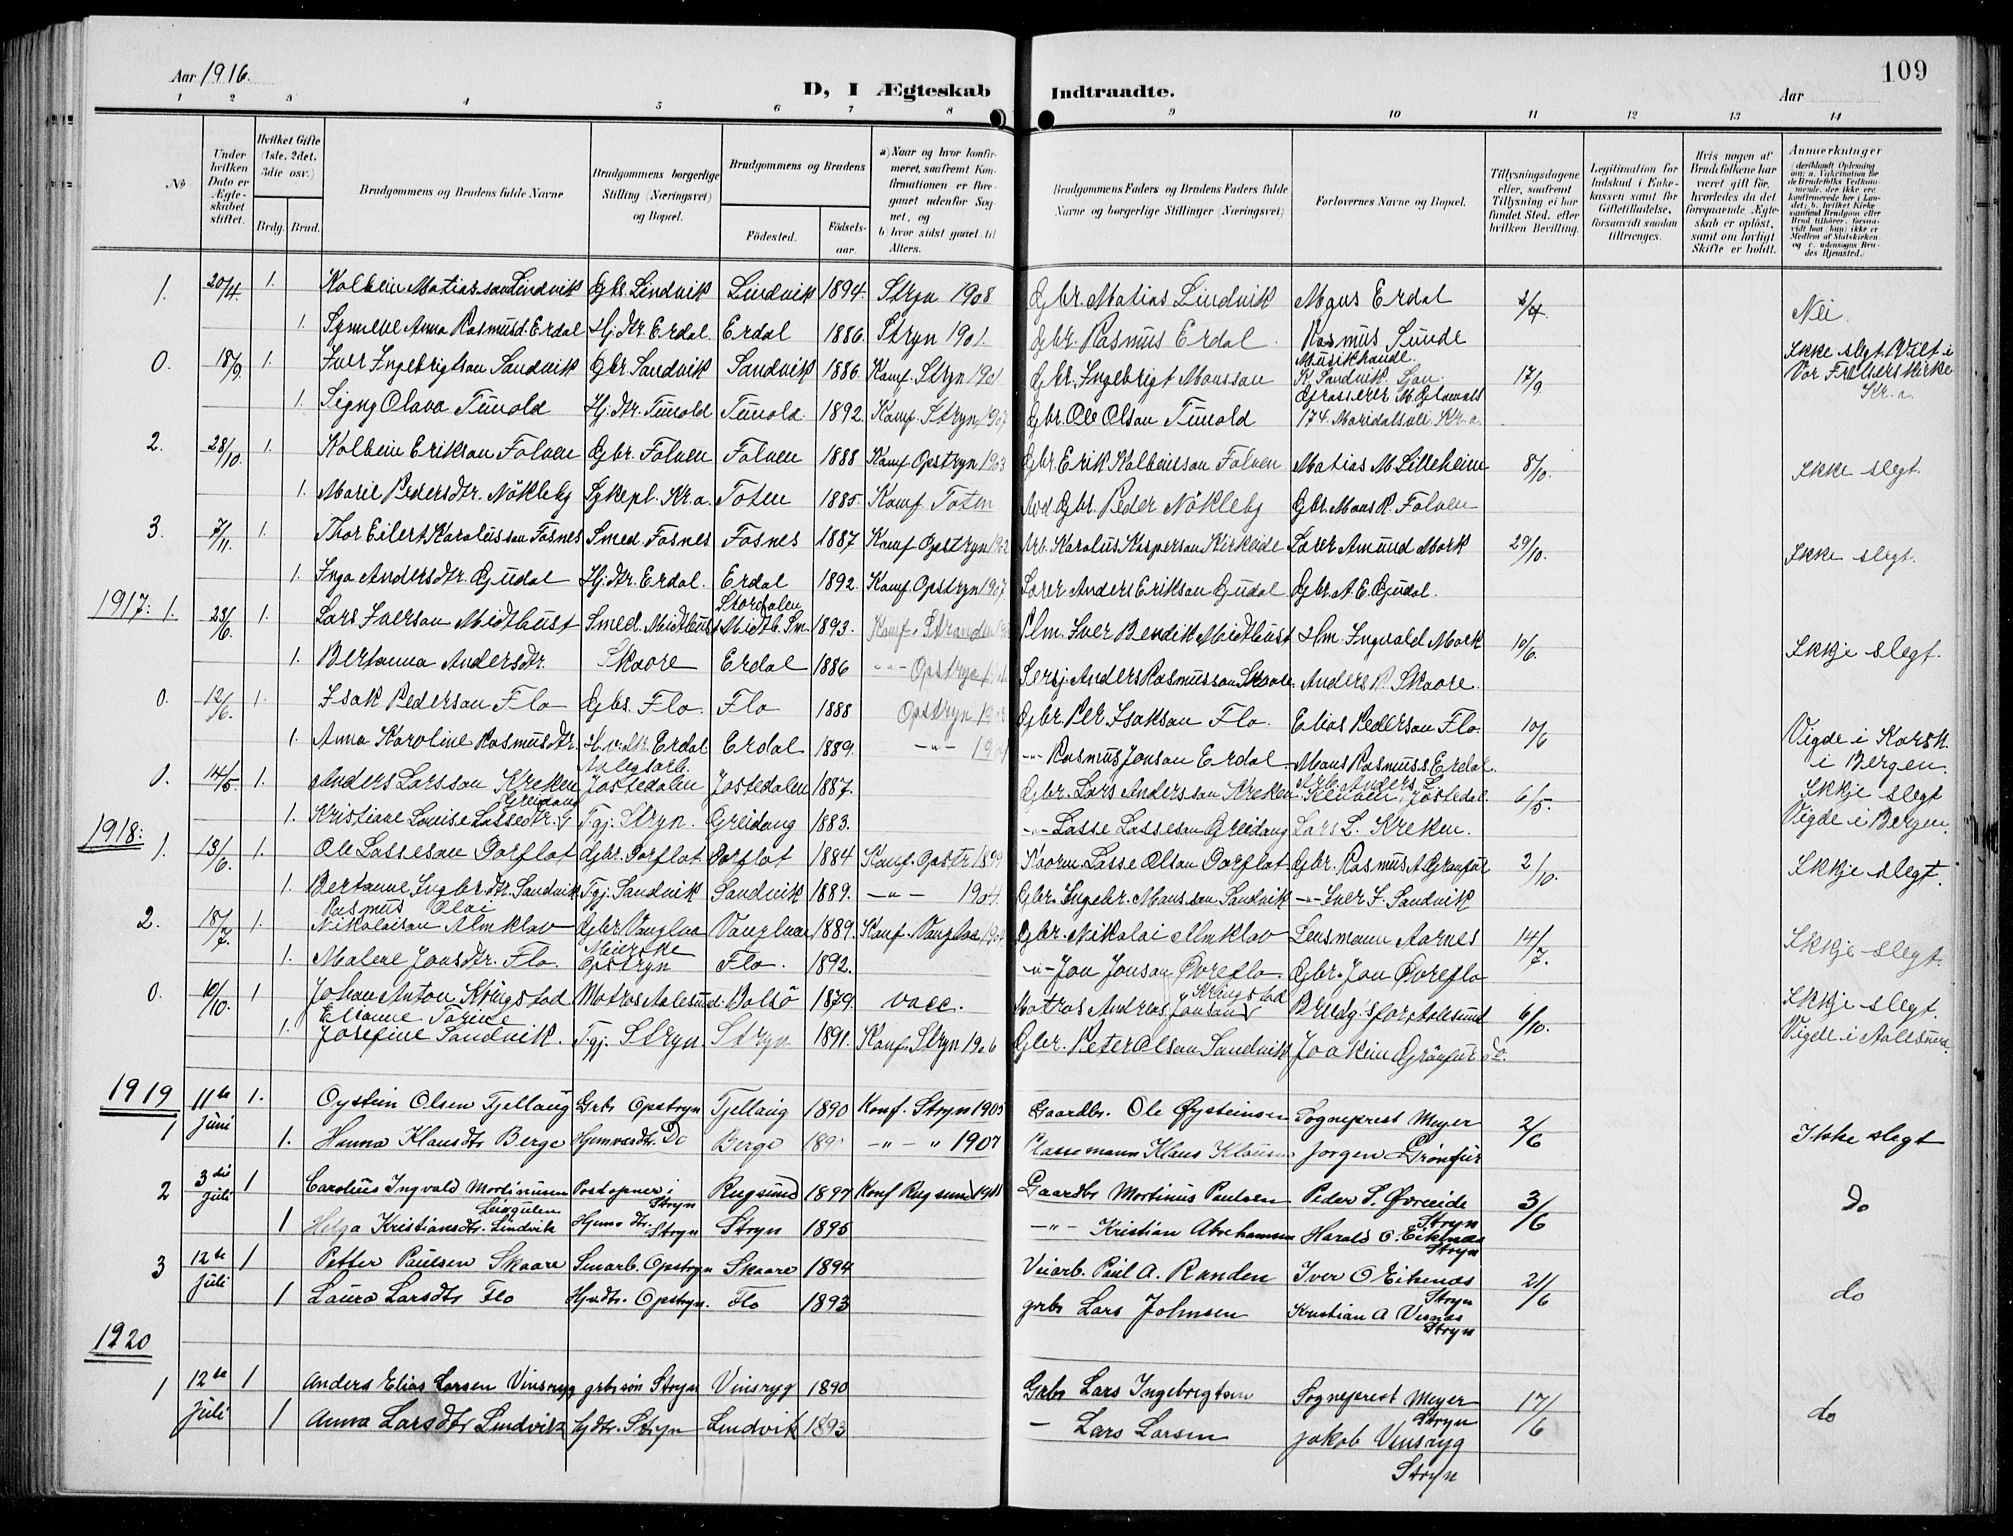 Aar 1916.
D, I Ægteskab
Indtraadte.
Aar
109
1 2 3 4 5 6 7 8 9 10 11 12 13 14
№
Under hvilken Dato er Ægteskabet stiftet.
Hvilket Gifte (1ste, 2det, 3die osv.)
Brdg. Brud.
Brudgommens og Brudens fulde Navne
Brudgommens borgerlige Stilling (Næringsvei) og Bopæl.
Brudgommens og Brudens
Fødested.
Fødselsaar.
a) Naar og hvor konfirmeret, saafremt Konfirmationen er foregaaet udenfor Sognet, og
b) hvor sidst gaaet til Alters.
Brudgommens Faders og Brudens Faders fulde Navne og borgerlige Stillinger (Næringsvei)
Forlovernes Navne og Bopæl.
Tillysningsdagene eller, saafremt Tillysning ei har fundet Sted, efter hvilken Bevilling.
Legitimation for Indskud i Enkekassen samt for Giftetilladelse, forsaavidt saadan tiltrænges.
Hvis nogen af Brudefolkene har været gift før, hvorledes da det foregaaende Ægteskab er opløst, samt om lovligt Skifte er holdt.
Anmærkninger
1. 20/4. 1. Kolbein Matiasson Lindvik Gbr. Lindvik Lindvik 1894. Stryn 1908 Gbr. Matias Lindvik Mons Erdal
1. Synneve Anna Rasmusd. Erdal Hj. dtr. Erdal. Erdal 1886. Stryn 1901. Gbr. Rasmus Erdal Rasmus Sunde Nei.
0. 18/9. 1. Iver Ingebrigtson Sandvik Gbr. Sandvik Sandvik 1886. Konf. Stryn 1901 Gbr. Ingebrigt Monsson Musikhandl. K. Sandvik 17/9. Ikke slegt. Viet i Vor Frelsers Kirke Kr.a.
1. Signy Olava Tunold Hj. dtr. Tunold Tunold 1892. Konf. Stryn 1907 Gbr. Ole Olson Tunold 174 Maridalsvei. Kr.a.
2. 28/10. 1. Kolbein Erikson Folven Gbr. Folven Folven 1888 Konf. Opstryn 1903 Gbr. Erik Kolbeinson Folven Matias M. Lilleheim 8/10. Ikke slegt.
1. Marie Pedersdtr. Nökleby Sykepl. Kr.a. Toten 1885. Konf. Toten Gbr. Peder Nökleby Gbr. Mons R. Folven
3. 7/11. 1. Thor Eilert Karolusson Fosnes Smed Fosnes Fosnes 1887 Konf. Opstryn 1902 Arb. Karolus Kasperson Kirkeide Lærer Amund Mork 29/10. Ikke slegt.
1. Inga Andersdtr. Gjudal Hj. dtr. Erdal. Erdal 1892. Konf. Opstryn 1907 Lærer Anders Erikson Gjudal Gbr. A. E. Gjudal.
1917: 1. 23/6. 1. Lars Iverson Midthust Smed. Midthust Stordalen Midtb. Sm. 1893. Konf. Stranda Plm. Iver Bendik Midthust Hm. Ingvald Mork 10/6. Ikkje slegt.
1. Bertanna Andersdtr. Skaare Erdal 1886 -"- Opstryn Anders Rasmusson Skaare. Anders R. Skaare.
0. 12/6. 1. Isak Pederson Flo Gbs. Flo. Flo 1888 Opstryn Gbr. Per Isakson Flo. Elias Pederson Flo. 10/6 Vigde i Korsk. i Bergen.
1. Anna Karoline Rasmusdtr. H.v.dtr. Erdal Erdal 1889. -"- -"- Rasmus Jonson Erdal Mons Rasmuss. Erdal.
0. 14/5. 1. Anders Larsson Kreken Anlegsarb. Jostedalen Jostedalen 1887. Gbr. Lars Andersson Kreken Arb. Anders L. Jostedal. 6/5. Ikkje slegt Vigde i Bergen.
1. Kristiane Louise Lassedtr. Greidung Tgj. Stryn. Greidung 1883. -"- Lasse Lasseson Greidung Lars L. Kreken.
1918: 1. 13/6. 1. Ole Lasseson Dorflot Gbr. Dorflot Dorflot 1884 Konf. Opstr. 1899 Kaarm. Lasse Olson Dorflot Gbr. Rasmus A. 2/10. Ikkje slegt.
1. Bertanne Ingbr.dtr. Sandvik Tgj. Sandvik Sandvik 1889. -"- 1904. Gbr. Ingebr. Monsson Sandvik -"- Iver I. Sandvik
2. 18/7. 1. Rasmus Olai Nikolaison Almklov Gbr. Vanylven Vanylven 1889. Konf. Vanylven Gbr. Nikolai Almklov Lensmann Aarnes 14/7. Ikkje slegt.
1. Malene Jonsdtr. Flo. Meierske Opstryn Flo. 1892. -"- Jon Jonson Övreflo. Gbr. Jon Övreflo
0. 10/10. 1 Johan Anton Kringstad Matros Aalesund. Bolsö 1879. vacc. Matros Andreas Jonson Kringstad Brudg.s far, Aalesund 6/10. Ikkje slegt. Vigde i Aalesund.
1. Elianne Torine Josefine Sandvik. Tgj. Stryn. Stryn. 1891. Konf. Stryn 1906 Gbr. Peter Olson Sandvik Joakim Grönfur do.
1919
1 11te juni 1. Oystein Olsen Tjellaug Grbr Opstryn Tjellaug 1890 Konf. Stryn 1905 Gaardbr. Ole Øysteinsen Sogneprest Meyer 2/6 Ikke slegt
1. Hanna Klausdtr Berge Hjemvdtr. Do Berge -"- " 1907 Klaus Klausen Jørgen Grönfur
2 3die juli 1 Carolius Ingvald Mortinusen Leirgulen Postopner i Stryn Rugsund 1897 Konf Rugsund Gaardbr Mortinus Paulsen Peder S. Øvreeide Stryn 3/6 do
1 Helga Kristiansdtr. Lindvik Hjemvdtr. Stryn Stryn 1895 -"- Kristian Abrahamsen Harald O. Eikenæs Stryn
3 12te juli 1 Petter Paulsen Skaare Smarb. Opstryn Skaare 1894 Veiarb. Paul A. Randen Iver O Eikenæs Stryn 21/6 do
1 Laura Larsdtr Flo Hjvdtr. Opstryn. Flo 1893 grbr Lars Johnsen Kristian A Visnæs Stryn
1920
1 12te juli 1 Anders Elias Larsen Vinsryg grbrsøn Stryn Vinsryg 1890 Grbr Lars Ingebrigtsen Sogneprest Meyer Stryn 17/6 do
1 Anna Larsdtr Lindvik Hjdtr. Stryn Lindvik 1893 — Lars Larsen Jakob Vinsryg Stryn